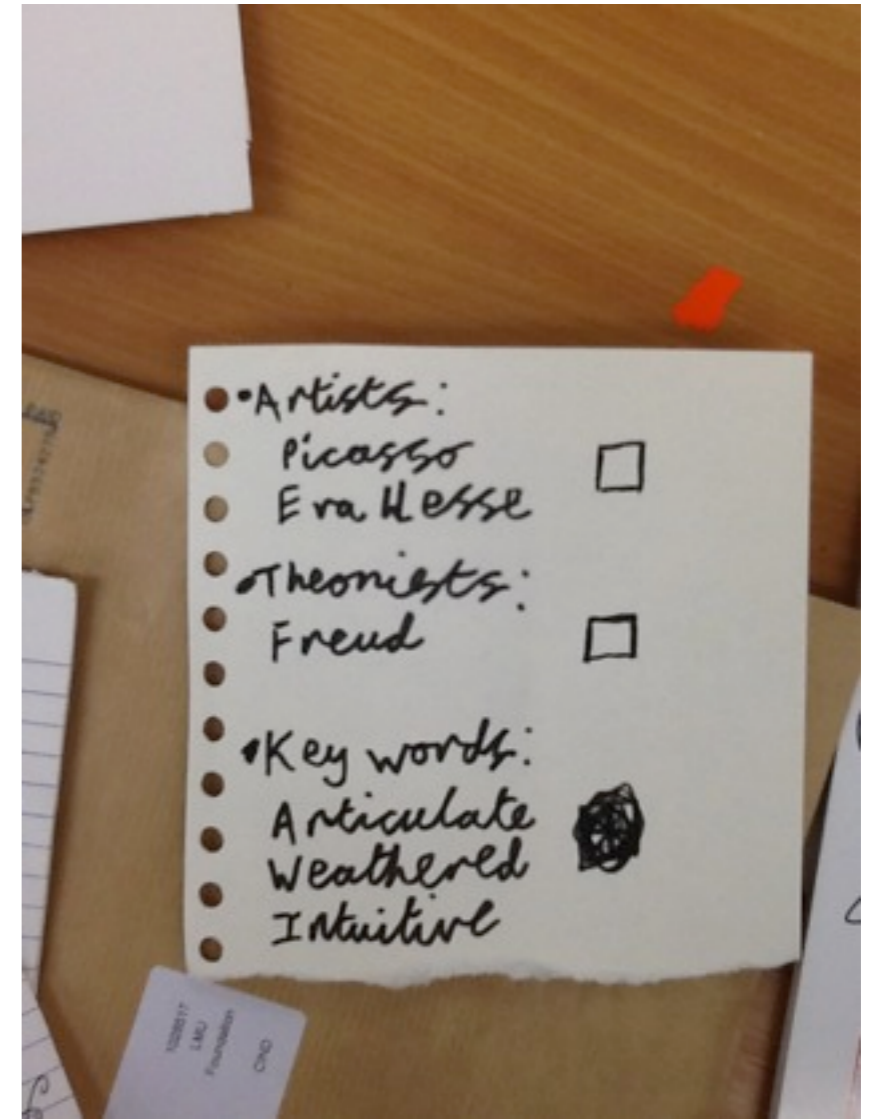 •Artists:
Picasso
Eva Hesse
•Theoriests:
Freud
•Key words:
Articulate
Weathered
Intuitive
LMU
Foundation
CIND